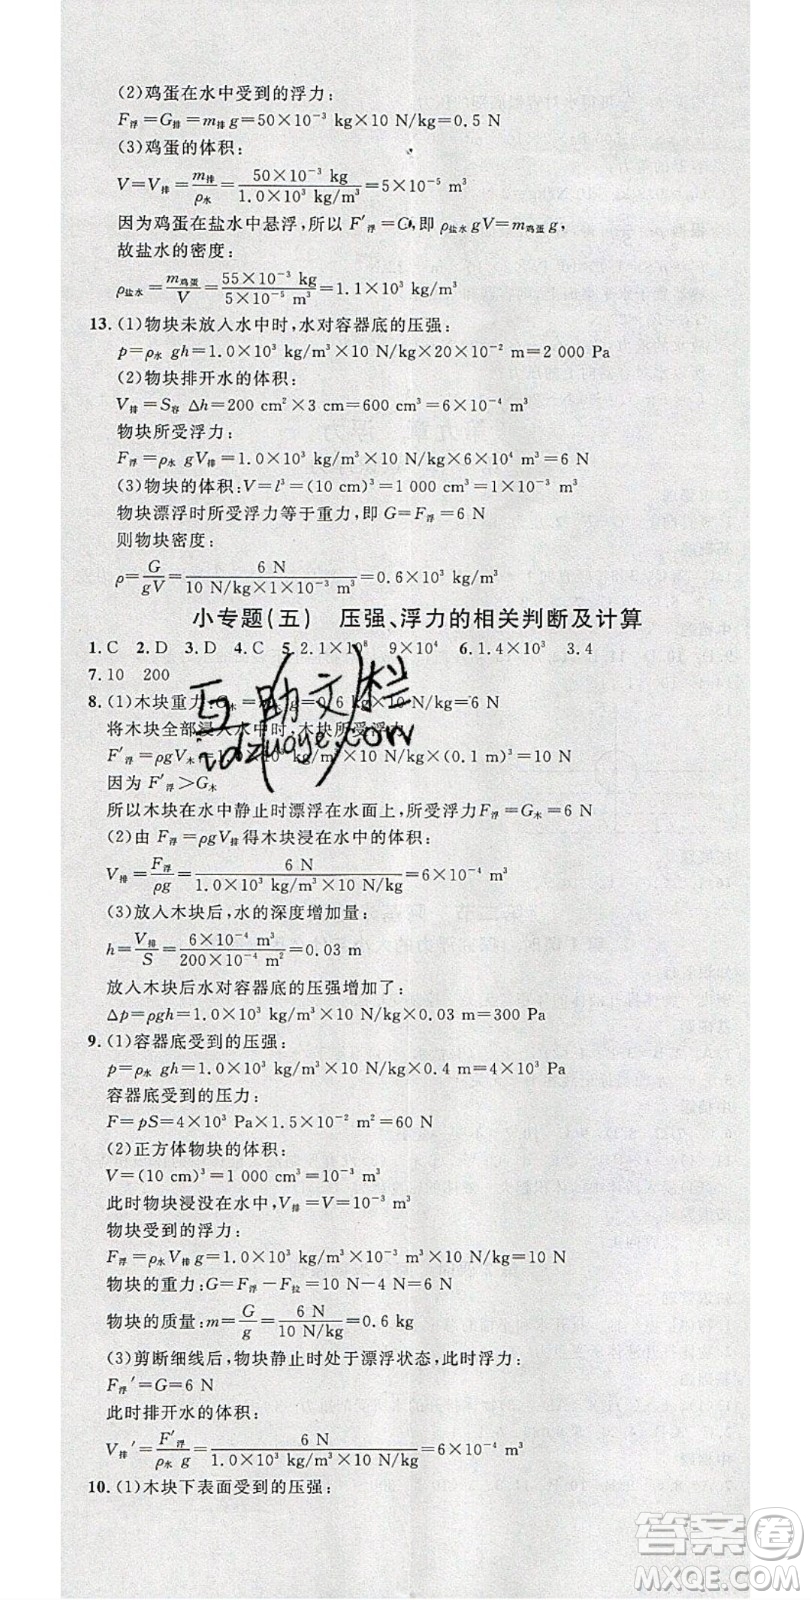 (2)鸡蛋在水中受到的浮力:
F浮=G排=m排g=50×10⁻³ kg×10 N/kg=0.5 N
(3)鸡蛋的体积:
V=V排=m排/ρ水=50×10⁻³ kg/1.0×10³ kg/m³=5×10⁻⁵ m³
因为鸡蛋在盐水中悬浮,所以 F′浮=G,即 ρ盐水gV=m鸡蛋g,
故盐水的密度:
ρ盐水=m鸡蛋/V=55×10⁻³ kg/5×10⁻⁵ m³=1.1×10³ kg/m³
13. (1)物块未放入水中时,水对容器底的压强:
p=ρ水gh=1.0×10³ kg/m³×10 N/kg×20×10⁻² m=2 000 Pa
(2)物块排开水的体积:
V排=S容Δh=200 cm²×3 cm=600 cm³=6×10⁻⁴ m³
物块所受浮力:
F浮=ρ水gV排=1.0×10³ kg/m³×10 N/kg×6×10⁻⁴ m³=6 N
(3)物块的体积:V=l³=(10 cm)³=1 000 cm³=1×10⁻³ m³
物块漂浮时所受浮力等于重力,即 G=F浮=6 N
则物块密度:
ρ=G/gV=6 N/10 N/kg×1×10⁻³ m³=0.6×10³ kg/m³
小专题(五) 压强、浮力的相关判断及计算
1. C 2. D 3. D 4. C 5. 2.1×10⁸ 9×10⁴ 6. 1.4×10³ 3.4
7. 10 200
8. (1)木块重力:G木=mg=0.6 kg×10 N/kg=6 N
将木块全部浸入水中时,木块所受浮力
F′浮=ρgV木=1.0×10³ kg/m³×10 N/kg×(0.1 m)³=10 N
因为 F′浮>G木
所以木块在水中静止时漂浮在水面上,所受浮力F浮=G木=6 N
(2)由 F浮=ρgV排得木块浸在水中的体积:
V排=F浮/ρg=6 N/1.0×10³ kg/m³×10 N/kg=6×10⁻⁴ m³
(3)放入木块后,水的深度增加量:
h=V排/S=6×10⁻⁴ m³/200×10⁻⁴ m²=0.03 m
放入木块后水对容器底的压强增加了:
Δp=ρgh=1.0×10³ kg/m³×10 N/kg×0.03 m=300 Pa
9. (1)容器底受到的压强:
p=ρ水gh=1.0×10³ kg/m³×10 N/kg×0.4 m=4×10³ Pa
容器底受到的压力:
F=pS=4×10³ Pa×1.5×10⁻² m²=60 N
(2)正方体物块的体积:
V=(10 cm)³=1 000 cm³=10⁻³ m³
此时物块浸没在水中,V排=V=10⁻³ m³
物块受到的浮力:
F浮=ρ水V排g=1.0×10³ kg/m³×10⁻³ m³×10 N/kg=10 N
物块的重力:G=F浮-F拉=10 N-4 N=6 N
物块的质量:m=G/g=6 N/10 N/kg=0.6 kg
(3)剪断细线后,物块静止时处于漂浮状态,此时浮力:
F浮′=G=6 N
此时排开水的体积:
V排′=F′浮/ρ水g=6 N/1.0×10³ kg/m³×10 N/kg=6×10⁻⁴ m³
10. (1)木块下表面受到的压强:
互助文栏
答案圈
MXQE.COM